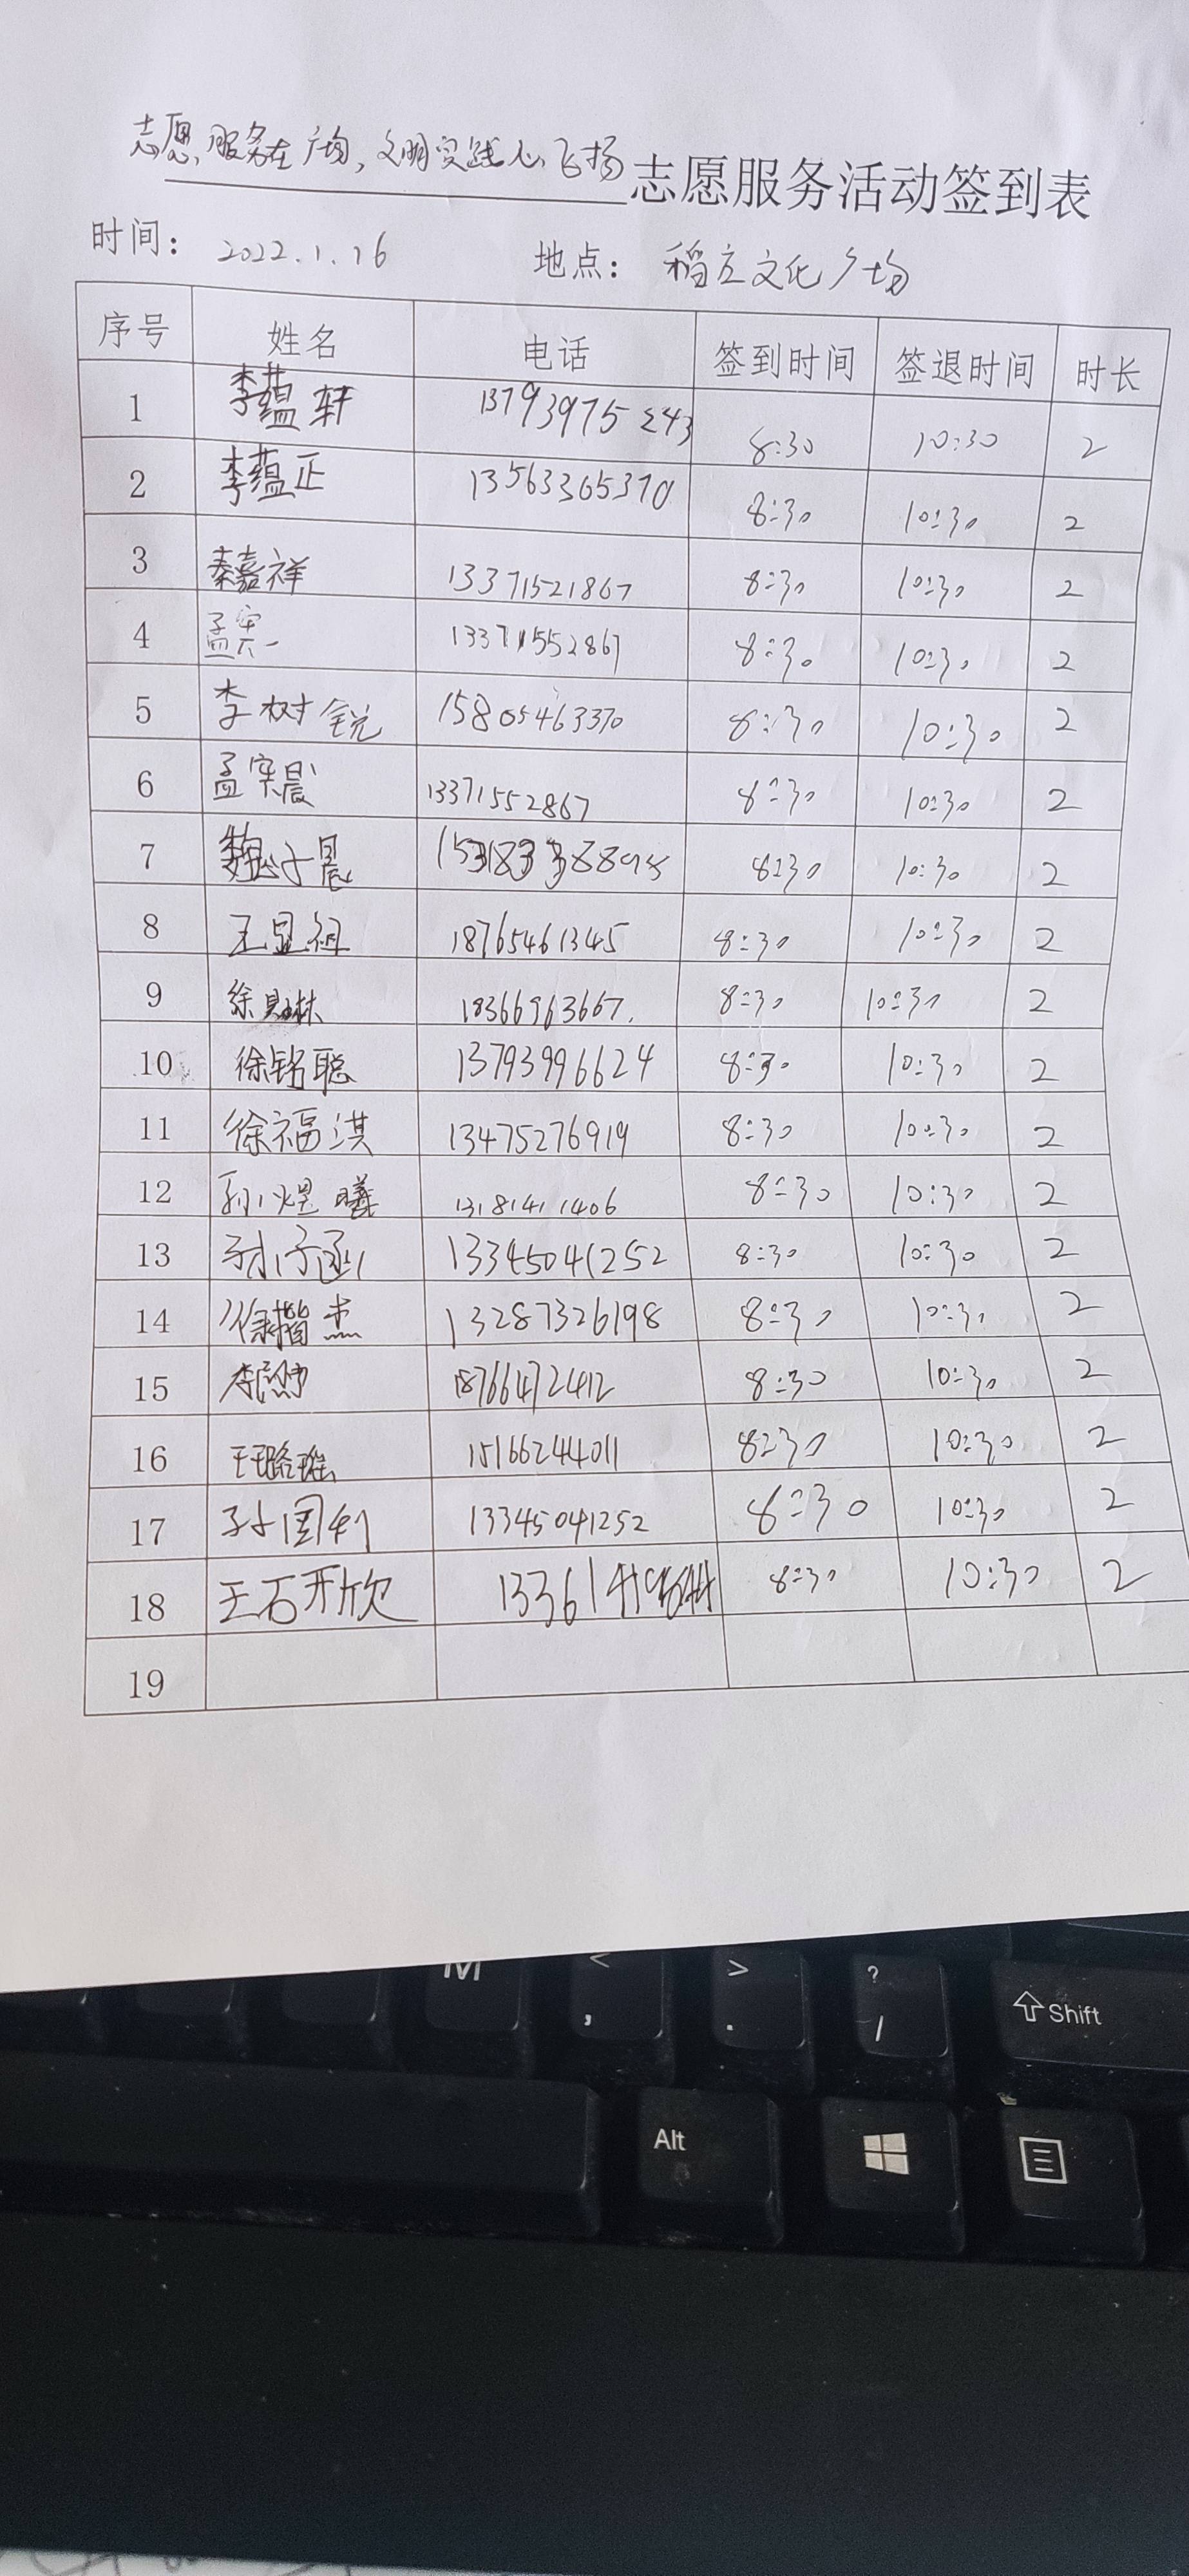 志愿服务在广场,文明实践心飞扬志愿服务活动签到表
时间: 2022.1.16 地点: 稻庄文化广场
序号 姓名 电话 签到时间 签退时间 时长
1 李蕴轩 13793975243 8:30 10:30 2
2 李蕴正 13563365370 8:30 10:30 2
3 秦嘉祥 13371521867 8:30 10:30 2
4 孟宪一 13371552867 8:30 10:30 2
5 李树锐 15805463370 8:30 10:30 2
6 孟宪晨 13371552867 8:30 10:30 2
7 魏子晨 8:30 10:30 2
8 王显祖 18765461345 8:30 10:30 2
9 徐 林 18366963667. 8:30 10:30 2
10 徐铭聪 13793996624 8:30 10:30 2
11 徐福淇 13475276919 8:30 10:30 2
12 孙煜曦 13181411406 8:30 10:30 2
13 孙子函 13345041252 8:30 10:30 2
14 徐楷杰 13287326198 8:30 10:30 2
15 李 18766472412 8:30 10:30 2
16 王璐瑶 15166244011 8:30 10:30 2
17 孙国利 13345041252 8:30 10:30 2
18 王石开欣 8:30 10:30 2
19
M < , > . ? / Shift
Alt